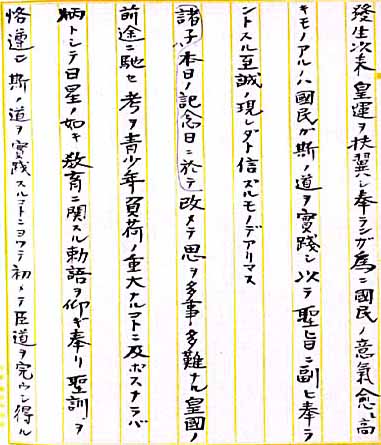 發生次来皇運ヲ扶翼シ奉ランガ爲ニ國民ノ意氣愈〻高
キモノアルハ國民ガ斯ノ道ヲ實踐シ以テ聖旨ニ副ヒ奉ラ
ントスル至誠ノ現レダト信ズルモノデアリマス
諸子本日ノ記念日ニ於テ改メテ思ヲ多事多難ナル皇國ノ
前途ニ馳セ考ヲ青少年負荷ノ重大ナルコトニ及ボスナラバ
炳トシテ日星ノ如キ教育ニ関スル勅語ヲ仰ギ奉リ聖訓ヲ
恪遵シ斯ノ道ヲ實踐スルコトニヨッテ初メテ臣道ヲ完ウシ得ル